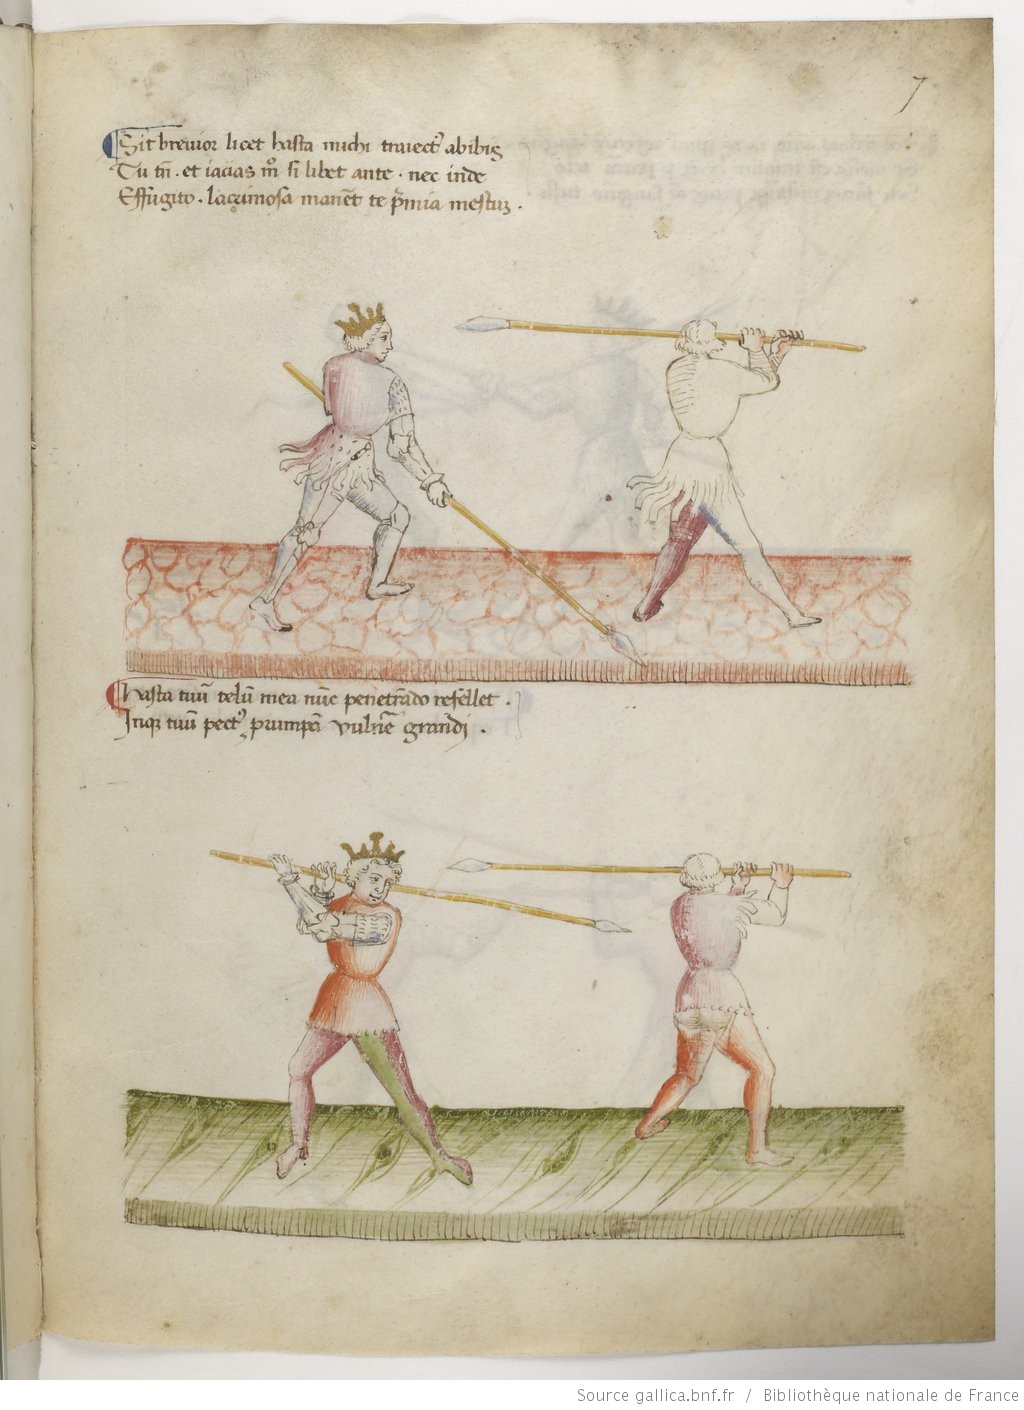 7
Sit breuior licet hasta michi traiectꝰ abibis
Tu tn̄ . et iacias mō si libet ante . nec inde
Effugito . lacrimosa manēt te p̄mia mestuꝫ .
Hasta tuū telū mea nūc penetrādo refellet .
Inqꝫ tuū pectꝰ prumpā vulnē grandi .
Source gallica.bnf.fr / Bibliothèque nationale de France